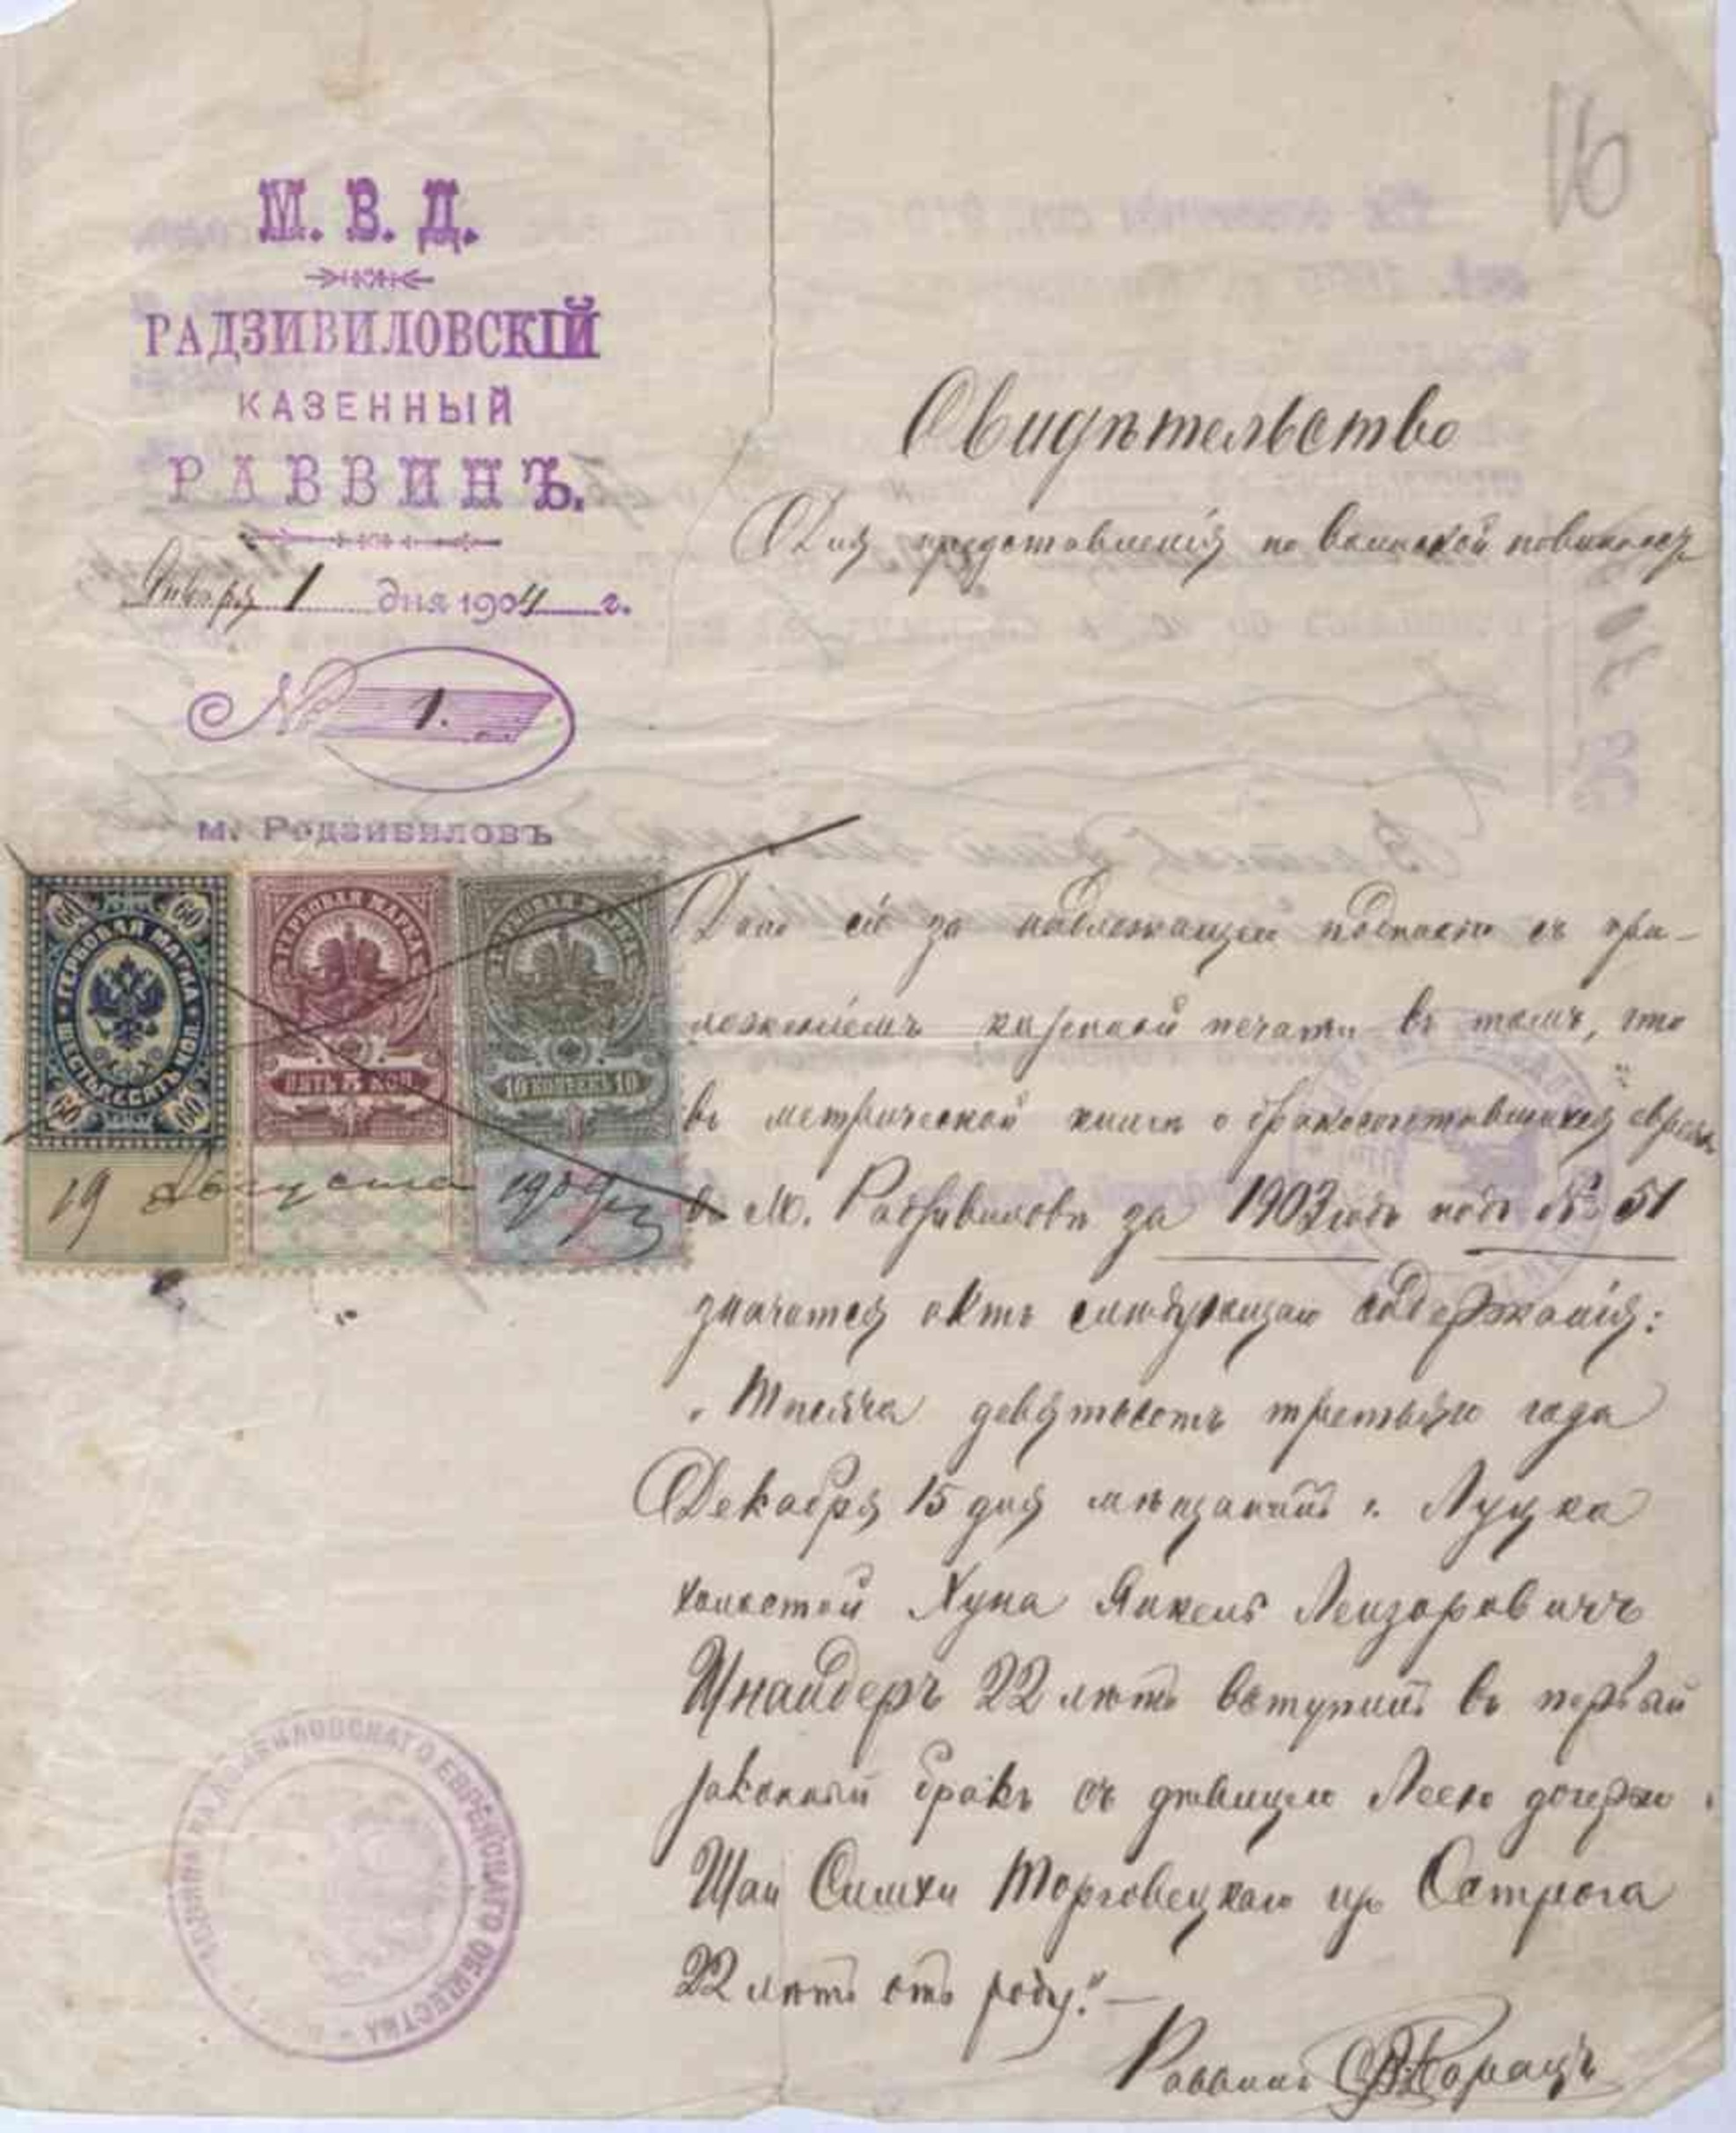 16
М. В. Д.
РАДЗИВИЛОВСКІЙ
КАЗЕННЫЙ
РАВВИНЪ.
Января 1 дня 1904 г.
№ 1.
м. Радзивиловъ
Свидѣтельство
Для представленія по воинской повинности
60 ГЕРБОВАЯ МАРКА 60
ШЕСТЬДЕСЯТЪ КОП.
60 60
ГЕРБОВАЯ МАРКА
ПЯТЬ 5 КОП.
ГЕРБОВАЯ МАРКА
10 КОПѢЕКЪ 10
19 Августа 1904 г
Дано сіе за надлежащей подписью съ при-
ложеніемъ казенной печати въ томъ, что
въ метрической книгѣ о бракосочетавшихся евреевъ
въ М. Радзивиловѣ за 1903 годъ подъ № 51
значится актъ слѣдующаго содержанія:
„Тысяча девятьсотъ третьяго года
Декабря 15 дня мѣщанинъ г. Луцка
холостой Хуна Янкель Лейзоровичъ
Шнайдеръ 22 лѣтъ вступилъ въ первый
законный бракъ съ дѣвицею Леею дочерью
Шаи Симхи Торговецкаго изъ Острога
22 лѣтъ отъ роду."—
Раввинъ
РАДЗИВИЛОВСКАГО ЕВРЕЙСКАГО ОБЩЕСТВА